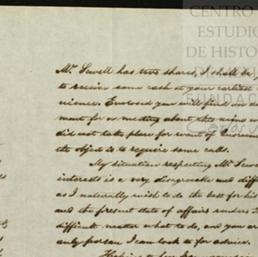 CENTRO
ESTUDIO
DE HISTO
Mr. Sewell has two shares, I shall be
to receive some cash at your earliest
nience. Enclosed you will find
ment for a meeting about this mine
did not take place for want of
the object is to require some calls.
My situation respecting Mr. Se
interests is a very disagreeable and diffi
as I naturally wish to do the best for his
and the present state of affairs renders i
difficult matter what to do, and you are
only person I can look to for advice.